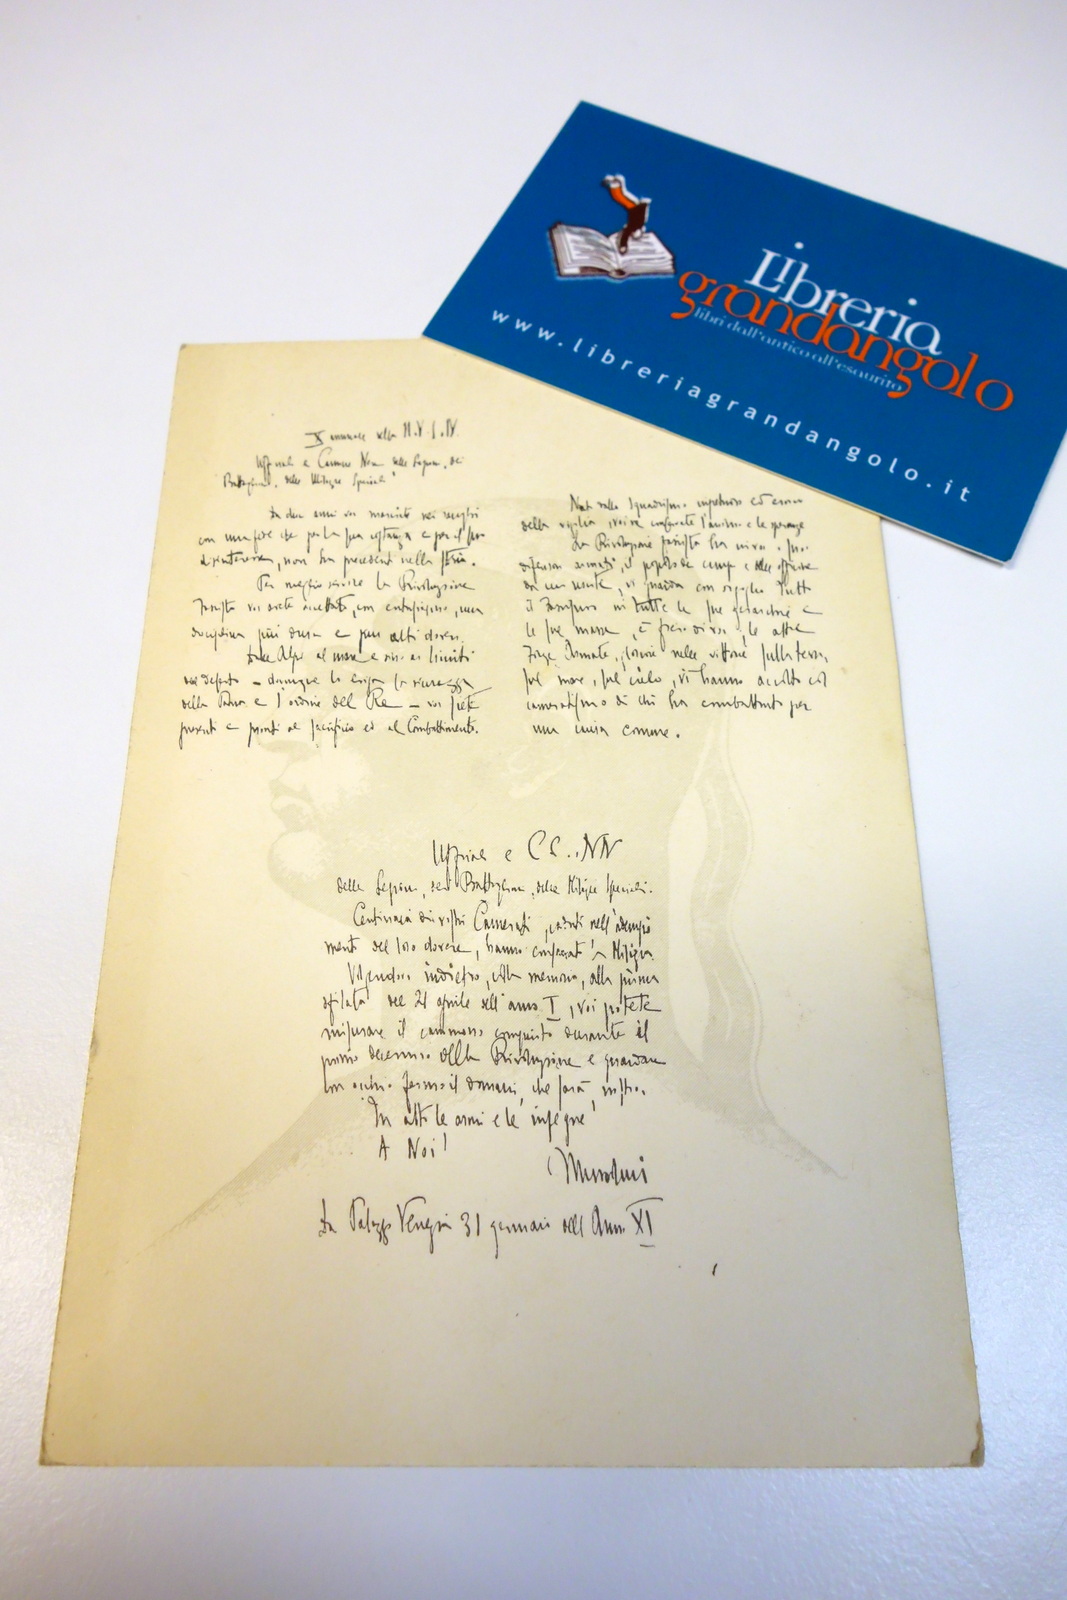 Libreria
grandangolo
libri dall'antico all'esaurito
www.libreriagrandangolo.it
X annuale della M.V.S.N.
Ufficiali e Camicie Nere delle Legioni, dei
Battaglioni, delle Milizie Speciali
Da dieci anni voi marciate nei ranghi
con una fede che per la sua costanza e per il suo
disinteresse, non ha precedenti nella storia.
Per meglio servire la Rivoluzione
Fascista voi avete accettato, con entusiasmo, una
disciplina più dura e più alti doveri.
Dalle Alpi al mare e sino ai limiti
del deserto - dovunque lo esiga la sicurezza
della Patria e l'ordine del Re - voi siete
presenti e pronti al sacrificio ed al Combattimento.
Nati dallo Squadrismo impetuoso ed eroico
della vigilia, voi ne conservate l'animo e le speranze
La Rivoluzione fascista ha in voi i suoi
difensori armati, il popolo dei campi e delle officine
da cui venite, vi guarda con orgoglio tutto
il Fascismo in tutte le sue gerarchie e
le sue masse, è fiero di voi, le altre
Forze Armate, gloriose nelle vittorie sulla terra,
sul mare, sul cielo, vi hanno accolto col
cameratismo di chi ha combattuto per
una causa comune.
Ufficiali e CC..NN
delle Legioni, dei Battaglioni, delle Milizie Speciali.
Centinaia di vostri Camerati, caduti nell'adempi
mento del loro dovere, hanno consacrato la Milizia.
Volgendovi indietro, colla memoria, alla prima
sfilata del 21 aprile dell'anno I, voi potete
misurare il cammino compiuto durante il
primo decennio della Rivoluzione e guardare
con occhio fermo il domani, che sarà nostro.
In alto le armi e le insegne
A Noi!
Mussolini
Da Palazzo Venezia 31 gennaio dell'Anno XI